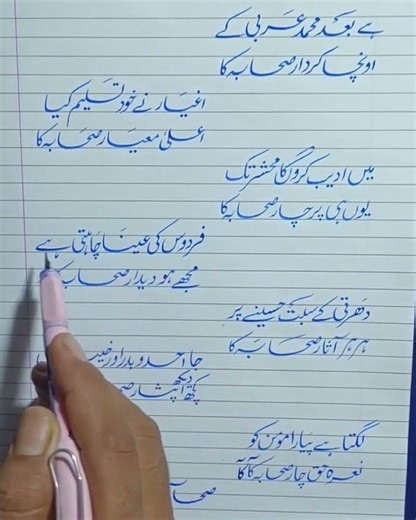 ہے بعد محمد عربی کے
اونچا کردار صحابہ کا
اغیار نے خود تسلیم کیا
اعلیٰ معیار صحابہ کا
میں ادیب کروں گا محشر تک
یوں ہی پرچار صحابہ کا
فردوس کی عینا چاہتی ہے
مجھے ہو دیدار صحابہ
دھرتی کے سینے پر
ہر ہر آثار صحابہ کا
جا احد و بدر اور
دیکھ
لگتا ہے پیارا مؤمن کو
نعرہ حق چار صحابہ کا